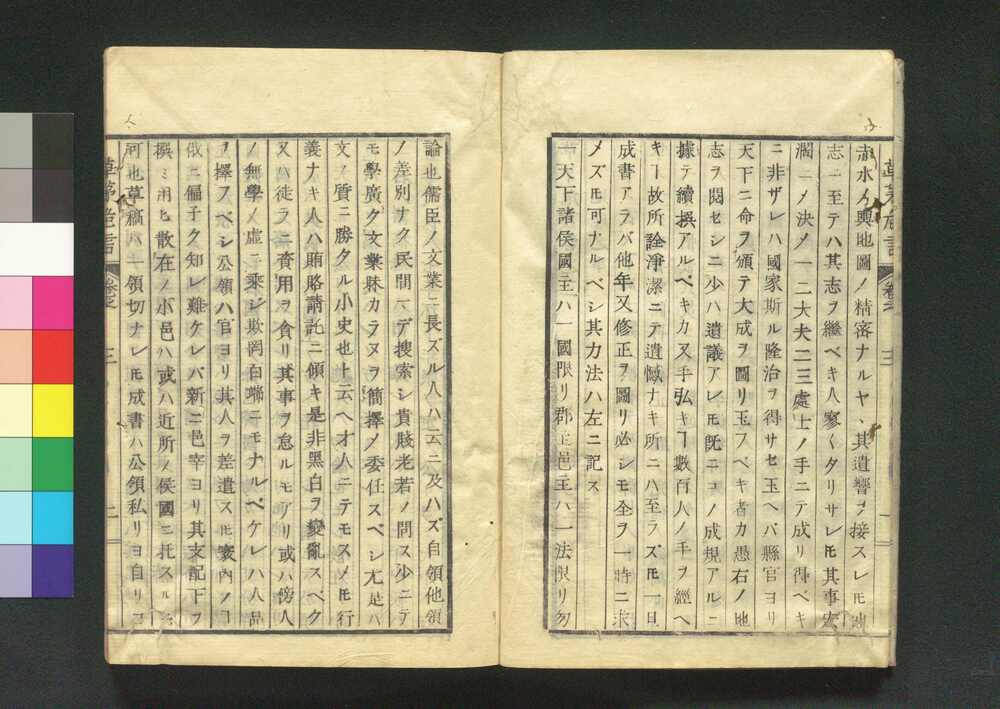 赤水ノ輿地圖ノ精密ナルヤ、其遺響ヲ接スレㇳモ
志ニ至テハ其志ヲ繼ベキ人寥くタリサレㇳモ其事宏
濶ニノ決メ一二大夫二三處士ノ手ニテ成リ得ベキ
ニ非ザレハ國家斯ル隆治ヲ得サセ玉ヘバ縣官ヨリ
天下ニ命ヲ頒テ大成ヲ圖リ玉フベキ者カ愚右ノ地
志ヲ閲セシニ少ハ遺議アレㇳモ既ニコノ成規アルニ
據テ續撰アルベキカ又手弘キヿ數百人ノ手ヲ經ヘ
キヿ故所詮淨潔ニテ遺憾ナキ所ニハ至ラズㇳモ一旦
成書アラバ他年又修正ヲ圖リ必シモ全ヲ一時ニ求
メズモ可ナルベシ其力法ハ左ニ記ス
一天下諸侯國主ハ一國限リ郡主邑主ハ一法限リ勿
草茅危言
三
論也儒臣ノ文業ニ長ズル人ハ云ニ及ハズ自領他領
ノ差別ナク民間マデ搜索シ貴賤老若ノ問ス少ニテ
モ學廣ク文業昧カラヌヲ簡擇メ委任スベシ尤是ハ
文ノ質ニ勝タル小史也ト云ヘ才人ニテモスメㇳモ行
義ナキ人ハ賄賂請託ニ傾キ是非黑白ヲ變亂スベク
又ハ徒ラニ資用ヲ貪リ其事ヲ怠ルモアリ或ハ傍人
ノ無學ノ虚ニ乘ジ欺罔百端ニモナルベケレハ人品
ヲ擇フベシ公領ハ官ヨリ其人ヲ差遣スㇳモ案内ノヿ
俄ニ偏子ク知レ難ケレバ新ニ邑宰ヨリ其支配下ヲ
撰ミ用ヒ散在ノ小邑ハ或ハ近所ノ侯國ニ托スル
可也草稿ハ一領切ナレㇳモ成書ハ公領私リヨ自リコ
草茅危言
三